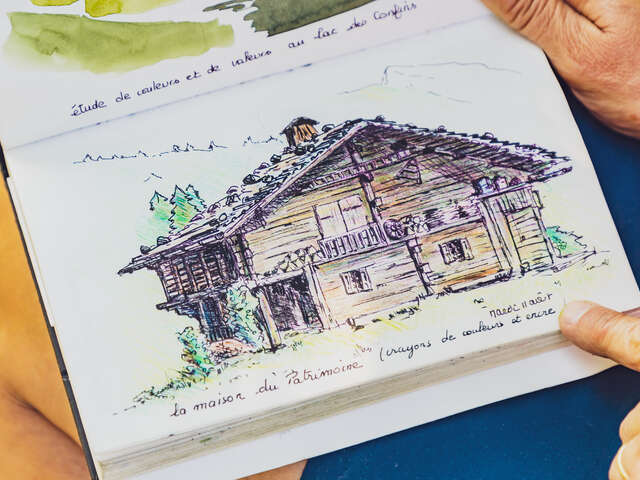 étude de couleurs et de valeurs au lac des Confins
mardi 11 août
la maison du Patrimoine (crayons de couleurs et encre